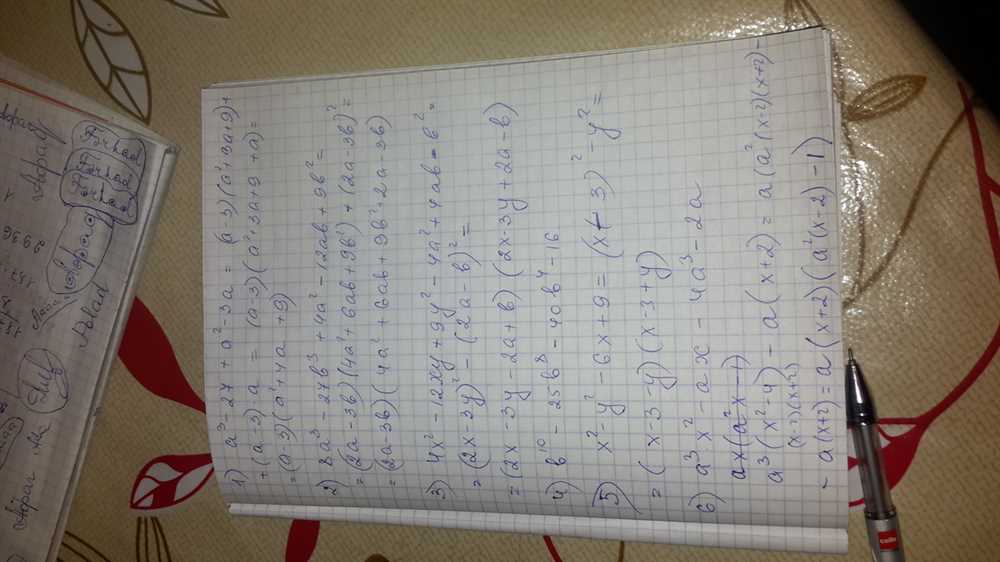 1) a³-27+a²-3a = (a-3)(a²+3a+9)+
+(a-3)a = (a-3)(a²+3a+9+a)=
=(a-3)(a²+4a+9)
2) 8a³-27b³+4a²-12ab+9b²=
=(2a-3b)(4a²+6ab+9b²)+(2a-3b)²=
=(2a-3b)(4a²+6ab+9b²+2a-3b)
3) 4x²-12xy+9y²-4a²+4ab-b²=
=(2x-3y)²-(2a-b)²=
=(2x-3y-2a+b)(2x-3y+2a-b)
4) b¹⁰-25b⁸-40b⁴-16
5) x²-y²-6x+9=(x-3)²-y²=
=(x-3-y)(x-3+y)
6) a³x²-ax-4a³-2a
ax(a²x-1)
a³(x²-4)-a(x+2)=a(a²(x-2)(x+2)-
(x-2)(x+2)
-a(x+2)=a(x+2)(a²(x-2)-1)
Aopar
Forhad
Forhad
Forhad
Polad
2936